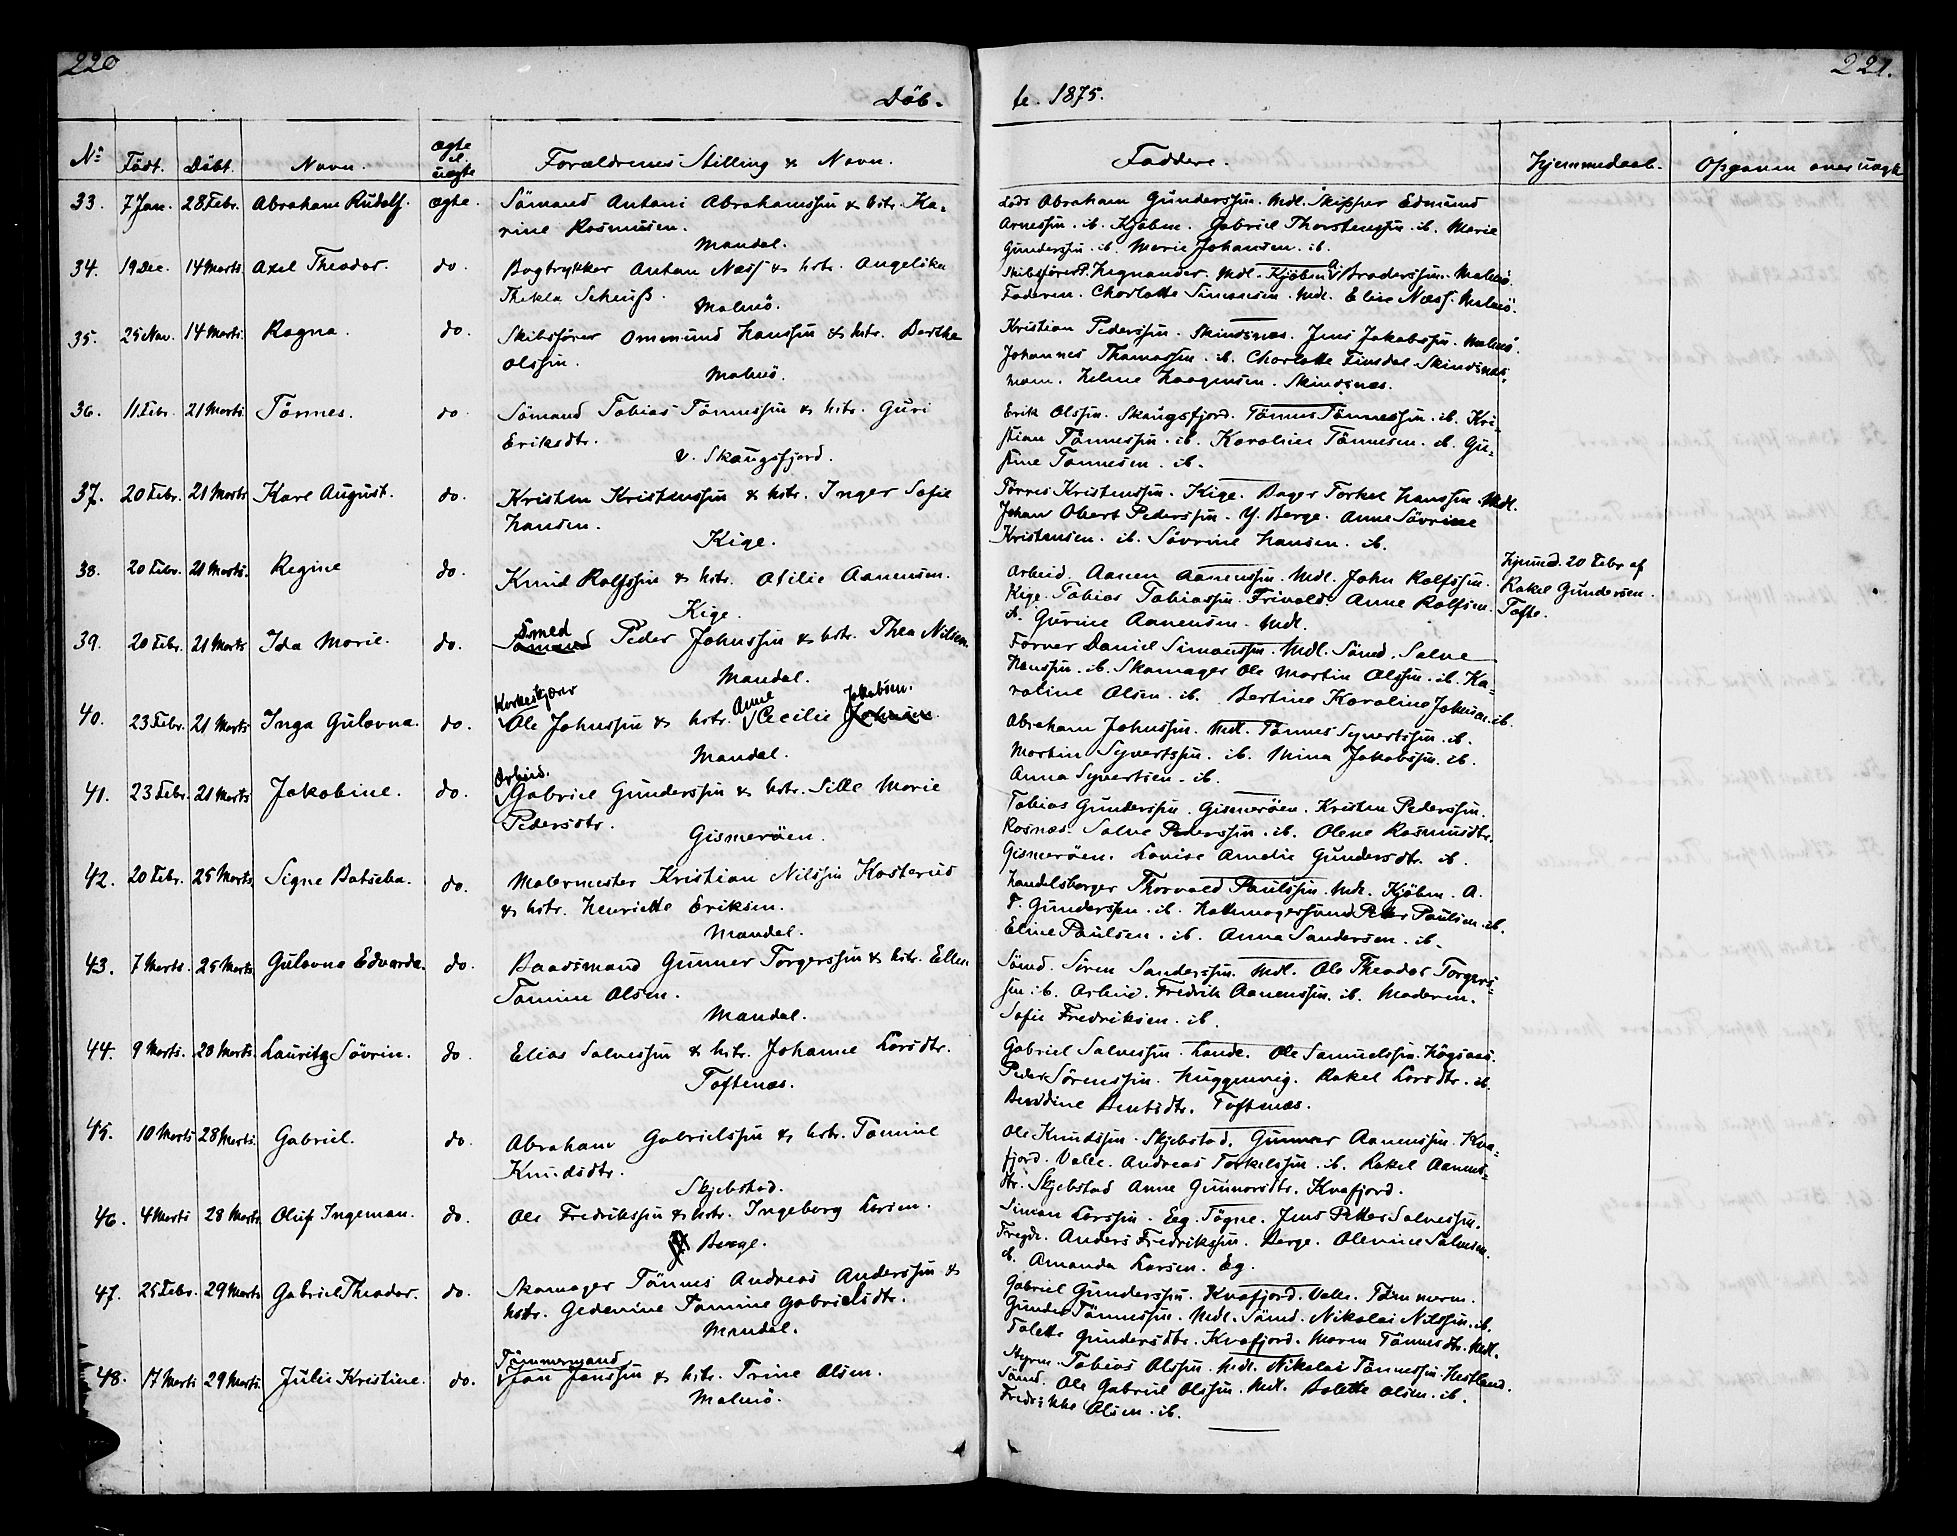 220
221.
Döb-
te. 1875.
No Födt. Döbt. Navn. ægte el. uægte Forældrenes Stilling & Navn.
Faddere. Hjemmedaab. Opgaven over uægte
33. 7 Jan. 28 Febr. Abraham Rudolf. ægte. Sömand Antoni Abrahamssen & hstr. Ka-
rine Rasmusen.
Mandal.
Lods Abraham Gunderssen. Mdl. Skipper Edmund
Arnessen. ib. Kjöbm. Gabriel Thorstenssen. ib. Marie
Gunderssen. ib. Marie Johansen. ib.
34. 19 Dec. 14 Marts. Axel Theodor. do. Bogtrykker Anton Næss & hstr. Angelika
Thekla Scheuss.
Malmö.
Skibsförer P. Zegnander. Mdl. Kjöbm. Broderssen. Malmö.
Faderen. Charlotte Simonsen. Mdl. Elise Næss. Malmö.
35. 25 Nov. 14 Marts. Ragna. do. Skibsförer Ommund Hanssen & hstr. Berthe
Olssen.
Malmö.
Kristian Pederssen. Skindsnæs. Jens Jakobssen. Malmö.
Johannes Thomassen. ib. Charlotte Finsdal. Skindsnæs.
mam. Helene Haagensen. Skindsnæs.
36. 11 Febr. 21 Marts. Tönnes. do. Sömand Tobias Tönnessen & hstr. Guri
Eriksdtr.
v. Skaugsfjord.
Erik Olssen. Skaugsfjord. Tönnes Tönnessen. ib. Kri-
stian Tönnessen. ib. Karoline Tönnesen. ib. Gu-
stine Tonnesen. ib.
37. 20 Febr. 21 Marts Karl August. do. Kristen Kristenssen & hstr. Inger Sofie
Hansen.
Kige.
Törres Kristenssen. Kige. Bager Torkel Hanssen. Mdl.
Johan Obert Pederssen. Y. Berge. Anne Sövrine
Kristensen. ib. Sövrine Hansen. ib.
38. 20 Febr. 21 Marts. Regine do. Knud Rolfssen & hstr. Otilie Aanensen.
Kige.
Arbeid. Aanen Aanenssen. Mdl. John Rolfssen.
Kige. Tobias Tobiassen. Frivold. Anne Rolfsen.
ib. Gurine Aanensen. Mdl.
Hjemmed. 20 Febr. af
Rakel Gundersen.
Tofte.
39. 20 Febr. 21 Marts Ida Marie. do. Smed Sömand Peder Johnssen & hstr. Thea Nilsen
Mandal.
Farver Daniel Simonssen. Mdl. Sömd. Salve
Hanssen. ib. Skomager Ole Martin Olssen. ib. Ka-
roline Olsen. ib. Bertine Karoline Johnsen. ib.
40. 23 Febr. 21 Marts Inga Gulovna. do. Kirketjener Ole Johnssen & hstr. Anne Cecilie Johnsen Jakobsen.
Mandal.
Abraham Johnssen. Mdl. Tönnes Syvertssen. ib.
Martin Syvertssen. ib. Mina Jakobssen. ib.
Anna Syvertsen. ib.
41. 23 Febr. 21 Marts Jakobine. do. Arbeid. Gabriel Gunderssen & hstr. Sille Marie
Pedersdtr.
Gismeröen.
Tobias Gunderssen. Gismeröen. Kristen Pederssen.
Rosnæs. Salve Pederssen. ib. Olene Rasmusdtr.
Gismeröen. Lovise Amelie Gundersdtr. ib.
42. 20 Febr. 25 Marts. Signe Batseba. do. Malermester Kristian Nilssen Kasterus
& hstr. Henriette Eriksen.
Mandal.
Handelsborger Thorvald Paulssen. Mdl. Kjöbm. A.
T. Gunderssen. ib. Hattmagersvend Peter Paulsen. ib.
Eline Paulsen. ib. Anna Sandersen. ib.
43. 7 Marts. 25 Marts. Gulovna Edvarda. do. Baadsmand Gunner Torgerssen & hstr. Ellen
Tomine Olsen.
Mandal.
Sömd. Sören Sanderssen. Mdl. Ole Theodor Torgers-
sen. ib. Arbeid. Fredrik Aanenssen. ib. Moderen.
Sofie Fredriksen. ib.
44. 9 Marts. 28 Marts. Lauritz Sövrin. do. Elias Salvessen & hstr. Johanne Larsdtr.
Toftenæs.
Gabriel Salvessen. Lande. Ole Samuelssen. Högsaas.
Peder Sörenssen. Huggenvig. Rakel Larsdtr. ib.
Berthine Bentsdtr. Toftenæs.
45. 10 Marts 28 Marts. Gabriel. do. Abraham Gabrielssen & hstr. Tomine
Knudsdtr.
Skjebstad.
Ole Knudssen. Skjebstad. Gunnar Aanenssen. Kva-
fjord. Valle. Andreas Torkelssen. ib. Rakel Aanens-
dtr. Skjebstad Anne Gunnarsdtr. Kvafjord.
46. 4 Marts 28 Marts. Oluf Ingeman. do. Ole Fredrikssen & hstr. Ingeborg Larsen.
Berge.
Simon Larssen. Eeg. Sögne. Jens Petter Salvessen.
Fregde. Anders Fredrikssen. Berge. Olevine Salvesen.
ib. Amanda Larsen. Eg.
47. 25 Febr. 29 Marts Gabriel Theodor. do. Skomager Tönnes Andreas Anderssen &
hstr. Gedemine Tomine Gabrielsdtr.
Mandal.
Gabriel Gunderssen. Kvafjord. Valle. Tömmerm.
Gunder Tönnessen. Mdl. Sömd. Nikolai Nilssen. ib.
Tolette Gundersdtr. Kvafjord. Maren Tönnesdtr. Mdl.
48. 17 Marts 29 Marts. Julie Kristine. do. Tömmermand Jan Janssen & hstr. Trine Olsen.
Malmö.
Styrm. Tobias Olssen. Mdl. Nikolai Tönnessen. Hestland.
Sömd. Ole Gabriel Olssen. Mdl. Bolette Olsen. ib.
Fredrikke Olsen. ib.